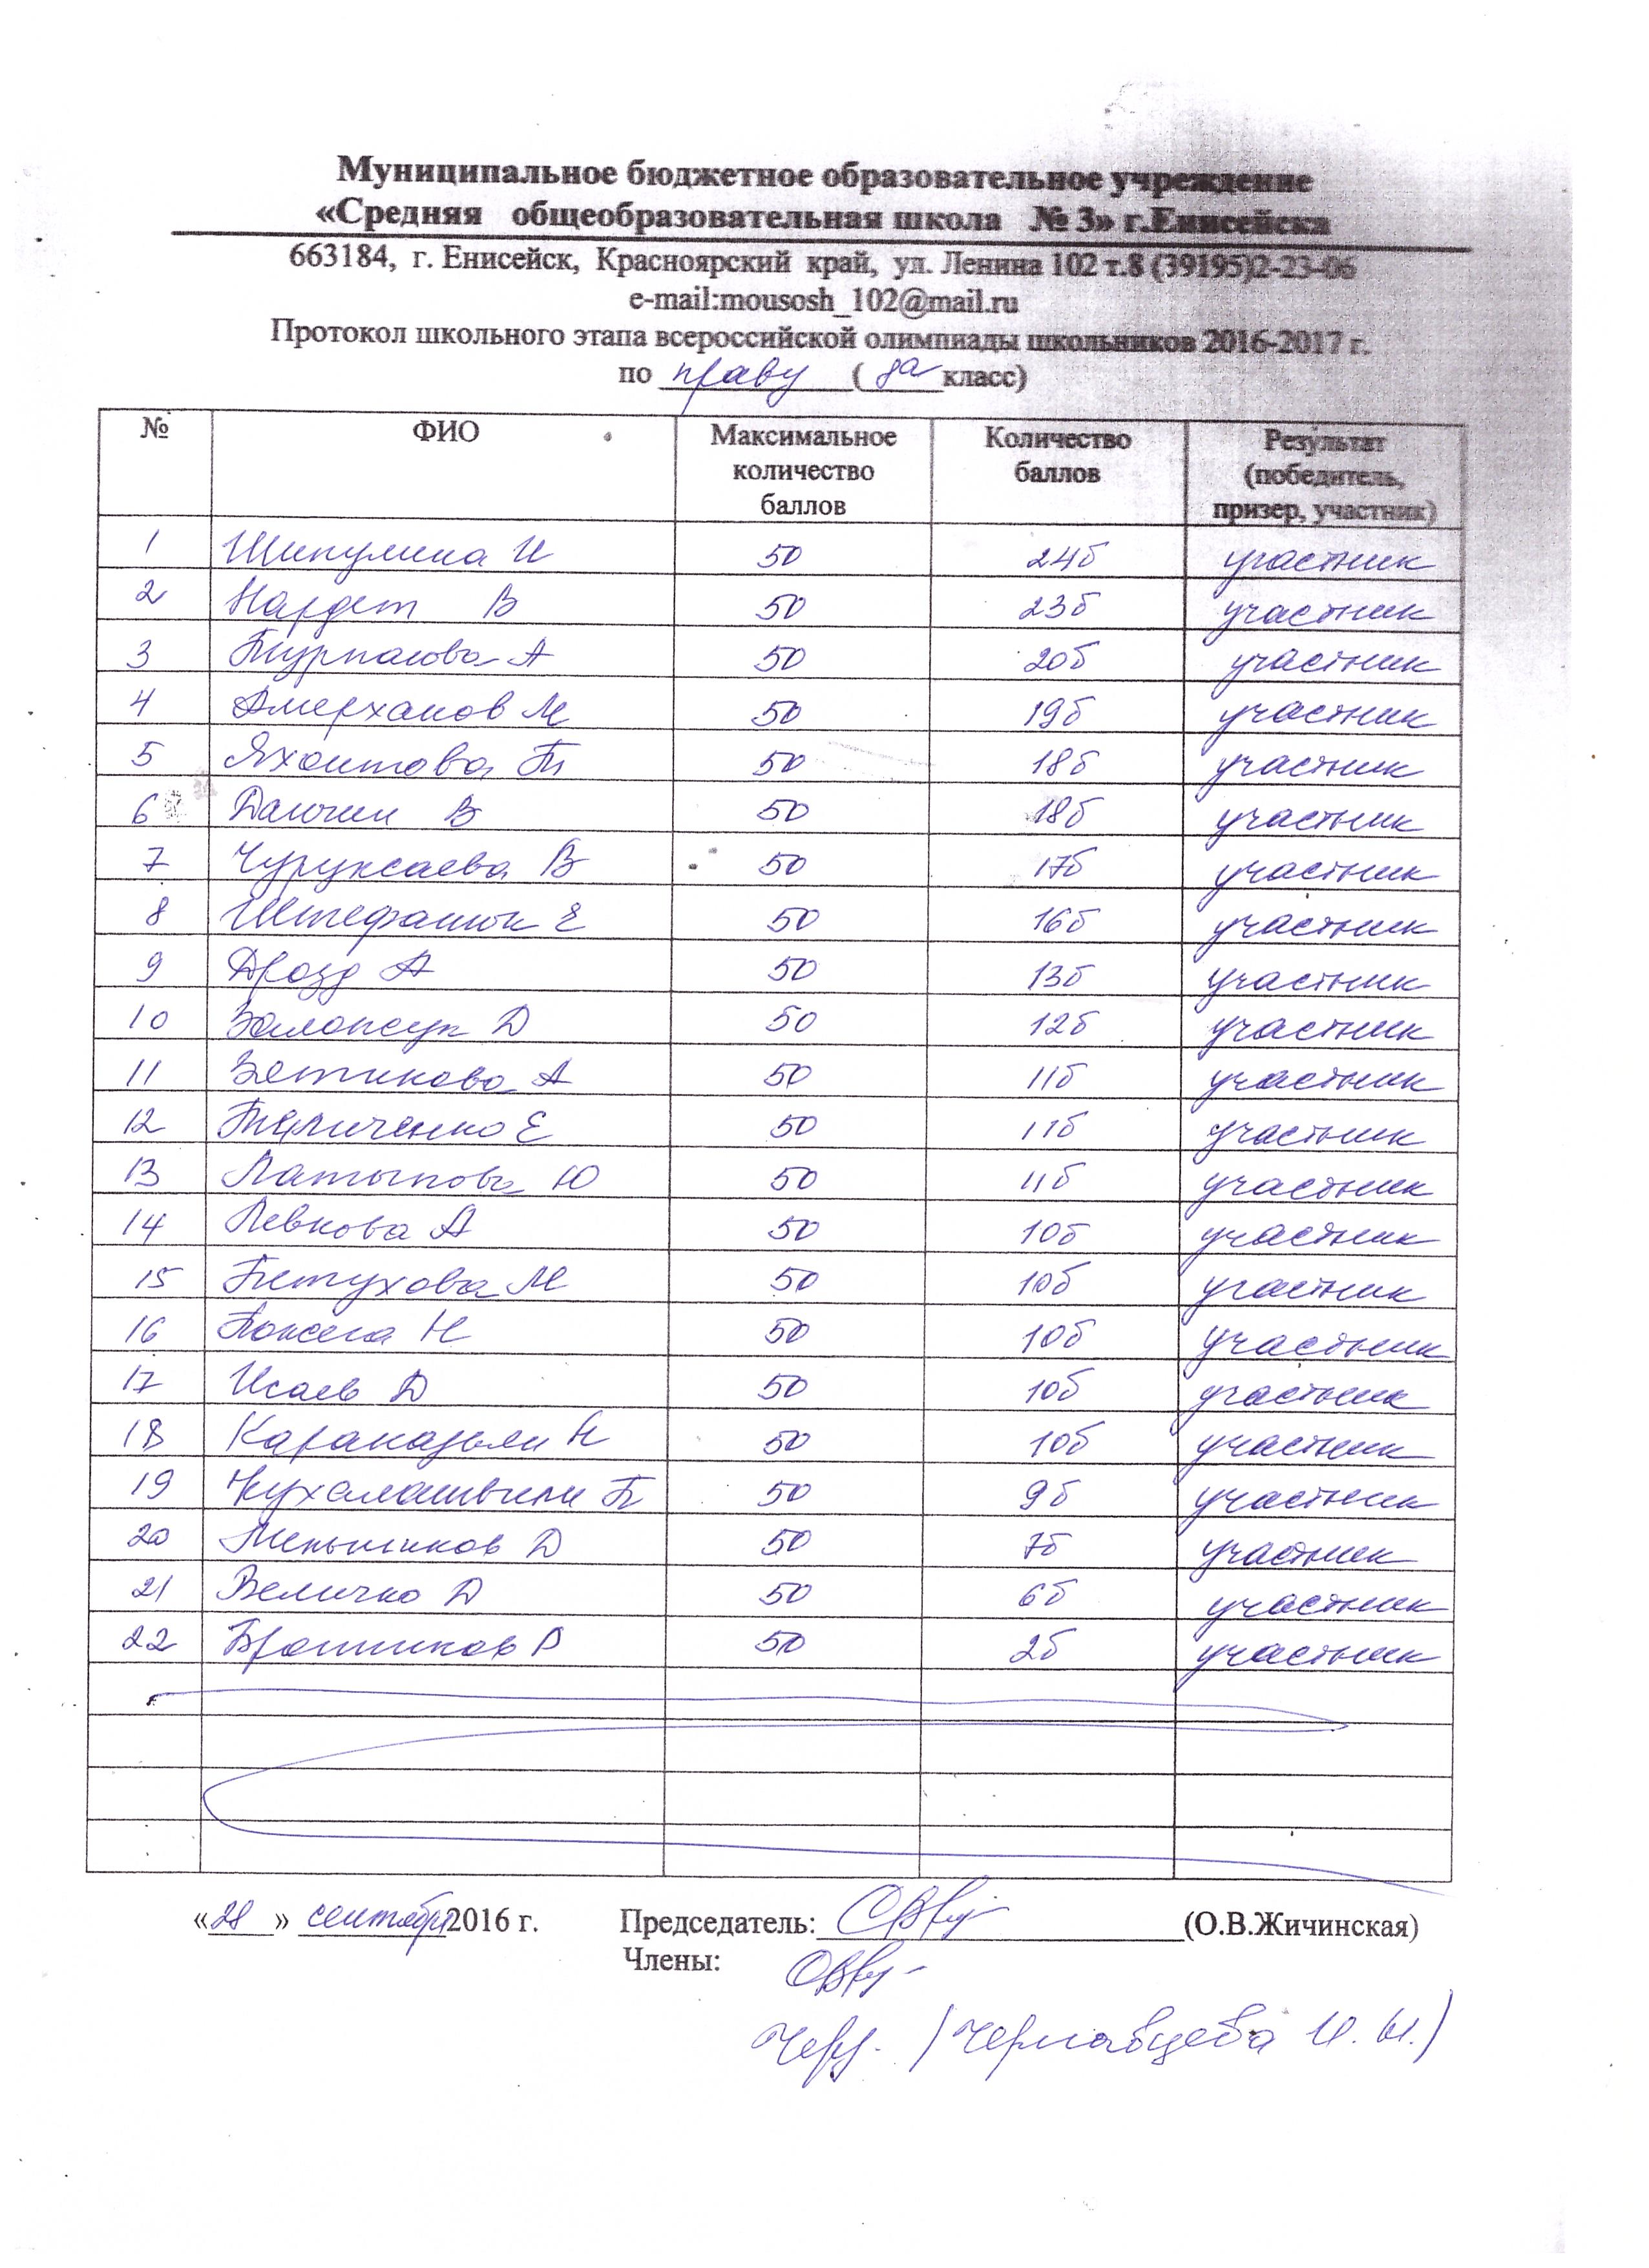 Муниципальное бюджетное образовательное учреждение
«Средняя общеобразовательная школа № 3» г.Енисейска
663184, г. Енисейск, Красноярский край, ул. Ленина 102 т.8 (39195)2-23-06
e-mail:mousosh_102@mail.ru
Протокол школьного этапа всероссийской олимпиады школьников 2016-2017 г.
по праву ( 8а класс)
№ ФИО Максимальное количество баллов Количество баллов Результат (победитель, призер, участник)
1 Шипулина И 50 24б участник
2 В 50 23б участник
3 А 50 20б участник
4 Амерханов М 50 19б участник
5 Яхонтова 50 18б участник
6 В 50 18б участник
7 Чуруксаева В 50 17б участник
8 Штефанюк Е 50 16б участник
9 Дрозд А 50 13б участник
10 Д 50 12б участник
11 А 50 11б участник
12 Е 50 11б участник
13 Латыпова Ю 50 11б участник
14 Левкова А 50 10б участник
15 Петухова М 50 10б участник
16 Н 50 10б участник
17 Исаев Д 50 10б участник
18 Н 50 10б участник
19 50 9б участник
20 Меньшиков Д 50 7б участник
21 Величко Д 50 6б участник
22 50 2б участник
«28» сентября 2016 г. Председатель: (О.В.Жичинская)
Члены:
(Чернавцева И. Н.)